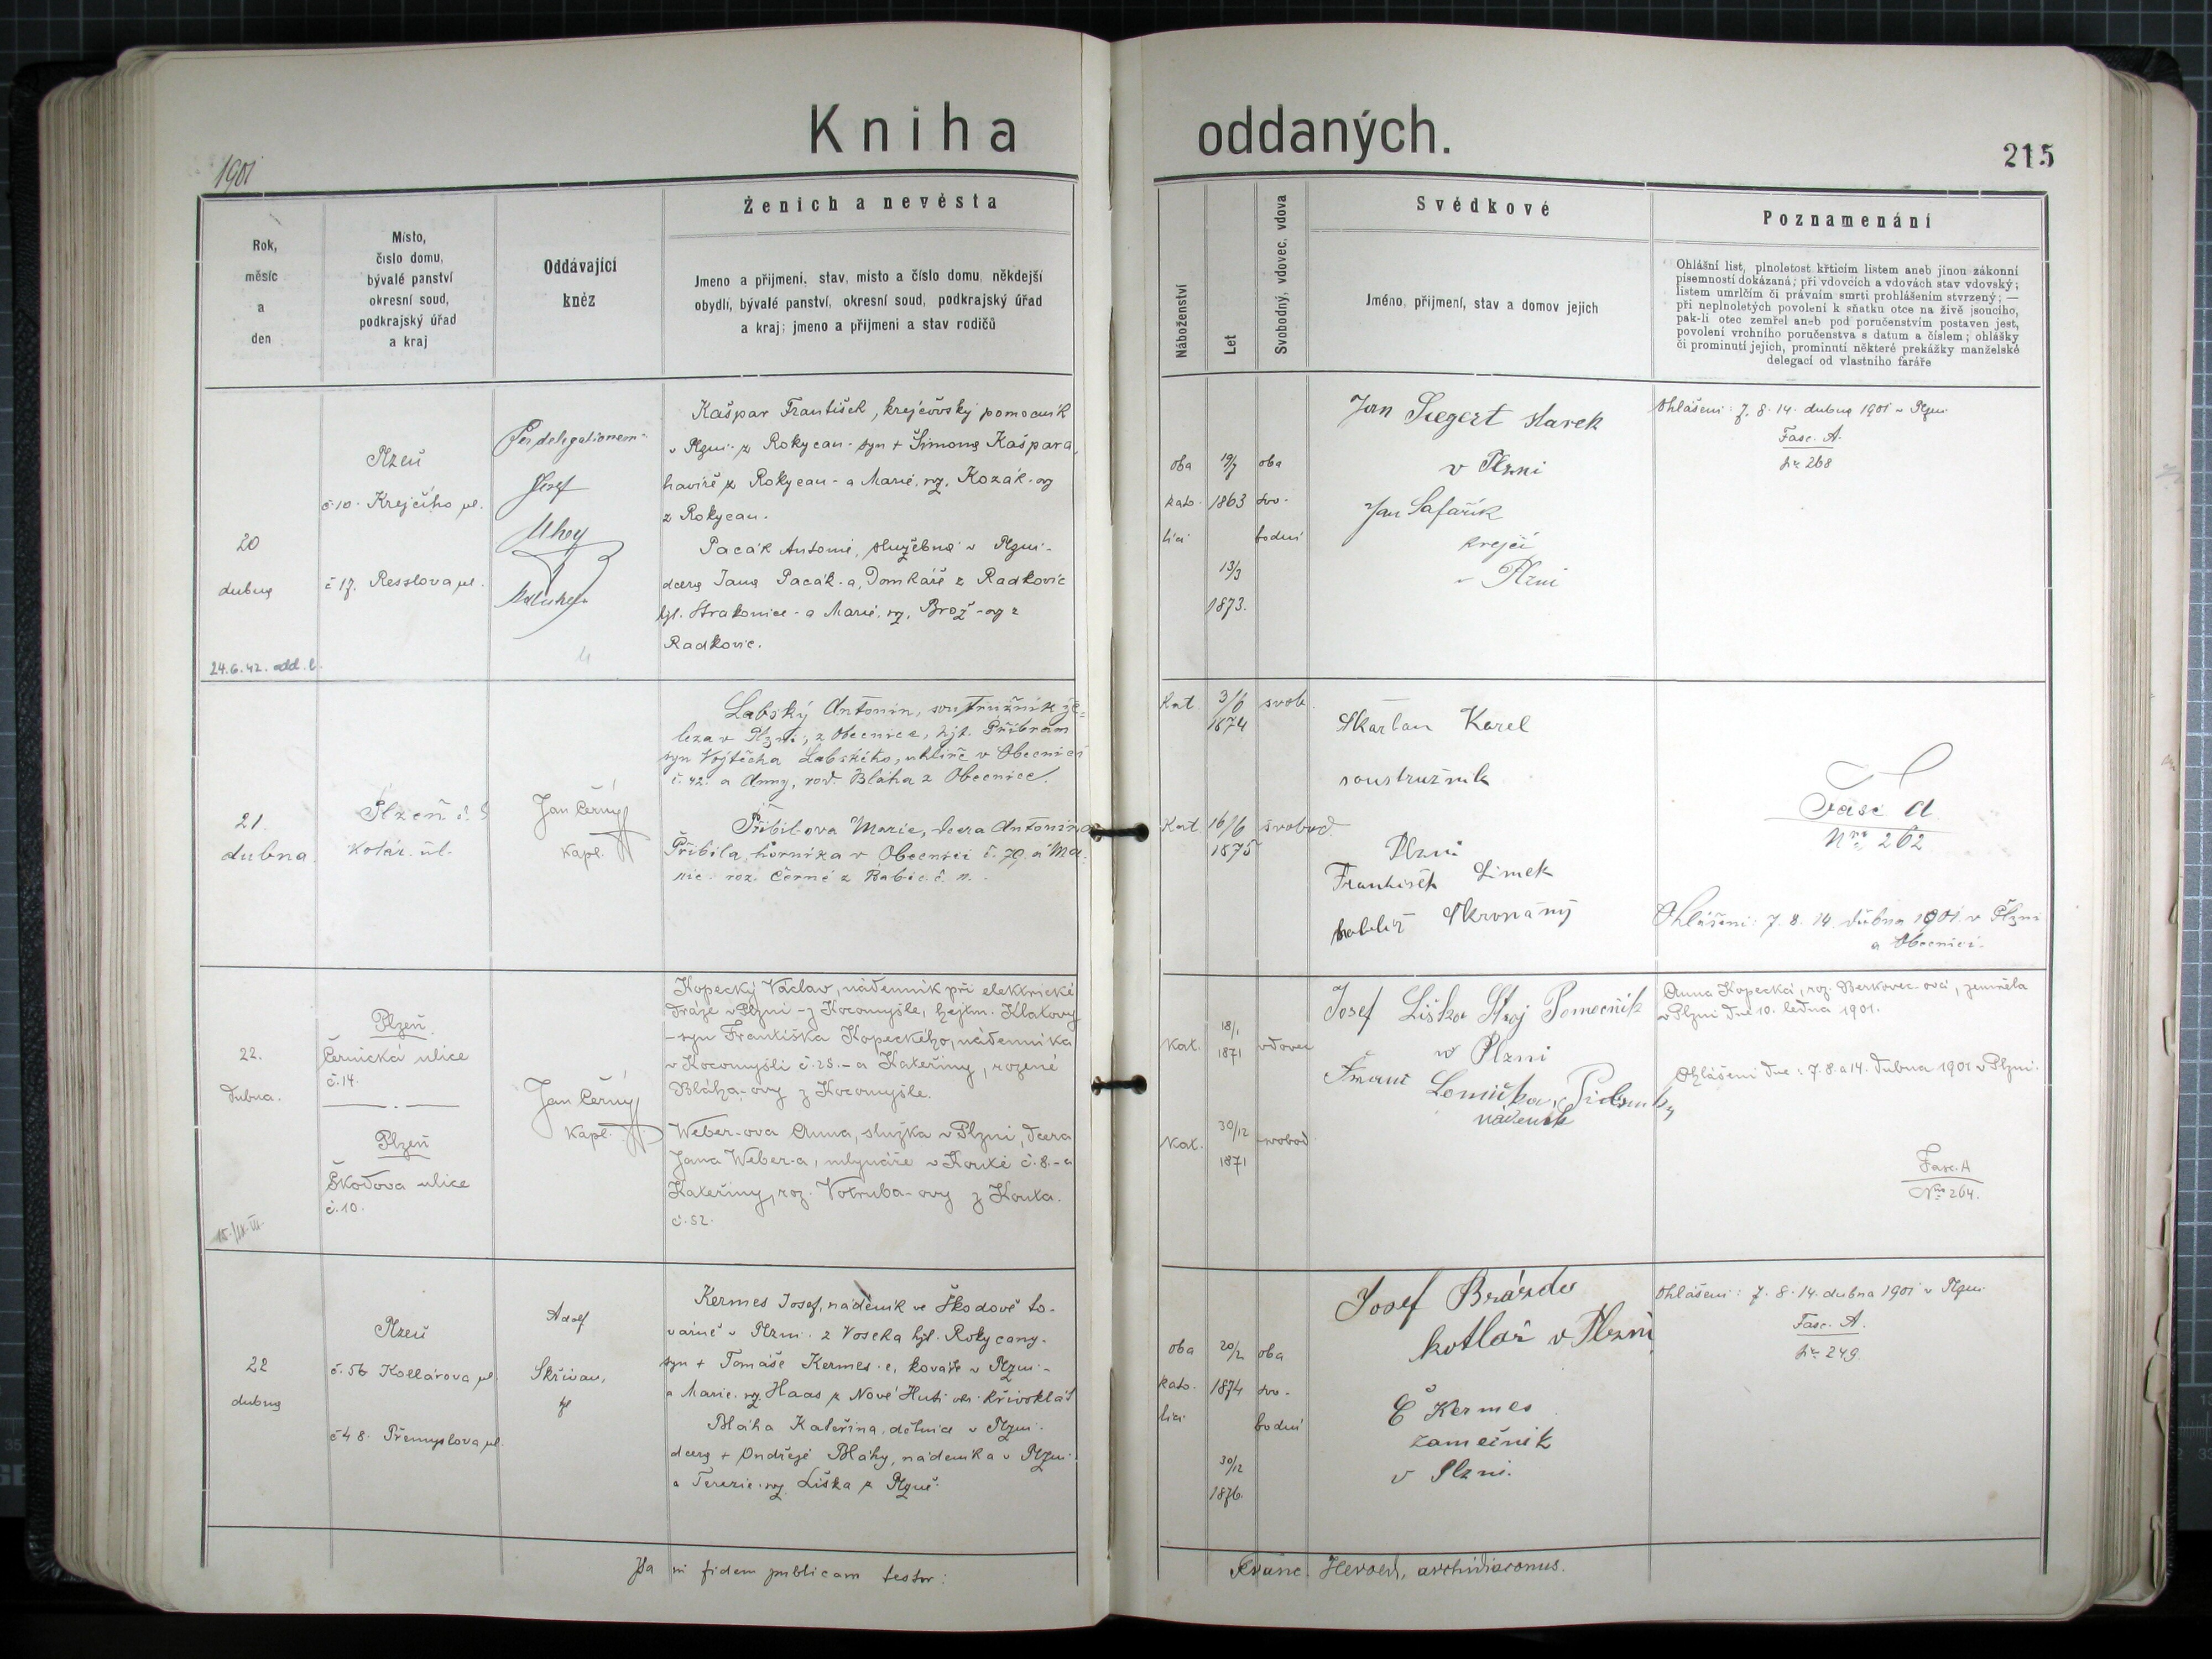 Kniha oddaných.
1901
215
Rok,
měsíc
a
den
Místo,
číslo domu,
bývalé panství
okresní soud,
podkrajský úřad
a kraj
Oddávající
kněz
Ženich a nevěsta
Jmeno a přijmeni, stav, misto a číslo domu, někdejší
obydlí, bývalé panství, okresní soud, podkrajský úřad
a kraj; jmeno a přijmeni a stav rodičů
Náboženství
Let
Svobodný, vdovec, vdova
Svědkové
Jméno, přijmení, stav a domov jejich
Poznamenání
Ohlášní list, plnoletost křticím listem aneb jinou zákonní
písemností dokázaná; při vdovcích a vdovách stav vdovský;
listem umrlčím či právním smrti prohlášením stvrzený; —
při neplnoletých povolení k sňatku otce na živě jsoucího,
pak-li otec zemřel aneb pod poručenstvím postaven jest,
povolení vrchního poručenstva s datum a číslem; ohlášky
či prominutí jejich, prominutí některé prekážky manželské
delegací od vlastního faráře
20
dubna
24.6.42. odd. l.
Plzeň
č. 10. Krejčího ul.
č 17. Resslova ul.
Per delegationem
Josef
Kašpar František, krejčovský pomocník
v Plzni z Rokycan - syn + Šimona Kašpara,
havíře z Rokycan - a Marie, roz. Kozák-ov
z Rokycan.
Pacák Antonie, služebná v Plzni -
dcera Jana Pacák-a, Domkáře z Radkovic
hjt. Strakonice - a Marie, roz. Brož-ov z
Radkovic.
oba
kato-
líci
19/7
1863
13/3
1873.
oba
svo-
bodní
Jan Siegert
v Plzni
Jan Šafařík
krejčí
v Plzni
Ohlášení: 7. 8. 14. dubna 1901 v Plzni
Fasc. A.
№ 268
21.
dubna.
Plzeň č.
Kolár. ul.
Jan Černý
kapl.
Labský Antonín, soustružník že-
leza v Plzni, z Obecnice, hjt. Příbram
syn Vojtěcha Labského, uhlíře v Obecnici
č. 42. a Anny, roz. Bláha z Obecnice.
Přibil-ova Marie, dcera Antonína
Přibila, horníka v Obecnici č. 79. a Ma-
rie roz. Černé z Babic č. 11.
Kat.
3/6
1874
svob.
Kat.
16/6
1875
svobod.
Skarlan Karel
soustružník
Plzni
František Šimek
Fasc A
Nro 262
Ohlášení: 7. 8. 14. dubna 1901 v Plzni
a Obecnici.
22.
dubna.
Plzeň
Černická ulice
č. 14.
Plzeň
Škodova ulice
č. 10.
Jan Černý
kapl.
Kopecký Václav, nádenník při elektrické
dráze v Plzni - z Kocomyšle, hejtm. Klatovy
- syn Františka Kopeckého, nádenníka
v Kocomyšli č. 25. - a Kateřiny, rozené
Bláha-ovy z Kocomyšle.
Weber-ova Anna, služka v Plzni, dcera
Jana Weber-a, mlynáře v Koutě č. 8. - a
Kateřiny, roz. Votruba-ovy z Kouta.
č. 52.
Kat.
18/1
1871
vdovec
Kat.
30/12
1871
svobod.
Josef Liška Stroj Pomocník
w Plzni
nádeník
Anna Kopecká, roz. Berkovec-ová, zemřela
v Plzni dne 10. ledna 1901.
Ohlášení dne: 7. 8. a 14. dubna 1901 v Plzni.
Fasc. A
Nro 264.
22
dubna
Plzeň
č. 56 Kollárova ul.
č 48. Přemyslova ul.
Adolf
Skřivan,
Kermes Josef, nádeník ve Škodově to-
várně v Plzni. z Voseka hjt. Rokycany.
syn + Tomáše Kermes-e, kováře v Plzni -
a Marie, roz. Haas z Nové Huti okr. Křivoklát
Bláha Kateřina, dělnice v Plzni.
dcera + Ondřeje Bláhy, nádeníka v Plzni
a Terezie, roz. Liška z Plzně.
oba
kato-
líci
20/2
1874
30/12
1876.
oba
svo-
bodní
Josef Brázda
kotlář v Plzni
Č Kermes
zámečník
v Plzni.
Ohlášení: 7. 8. 14. dubna 1901 v Plzni
Fasc. A.
№ 249.
Ita in fidem publicam testor:
Franc. Herold, archidiaconus.